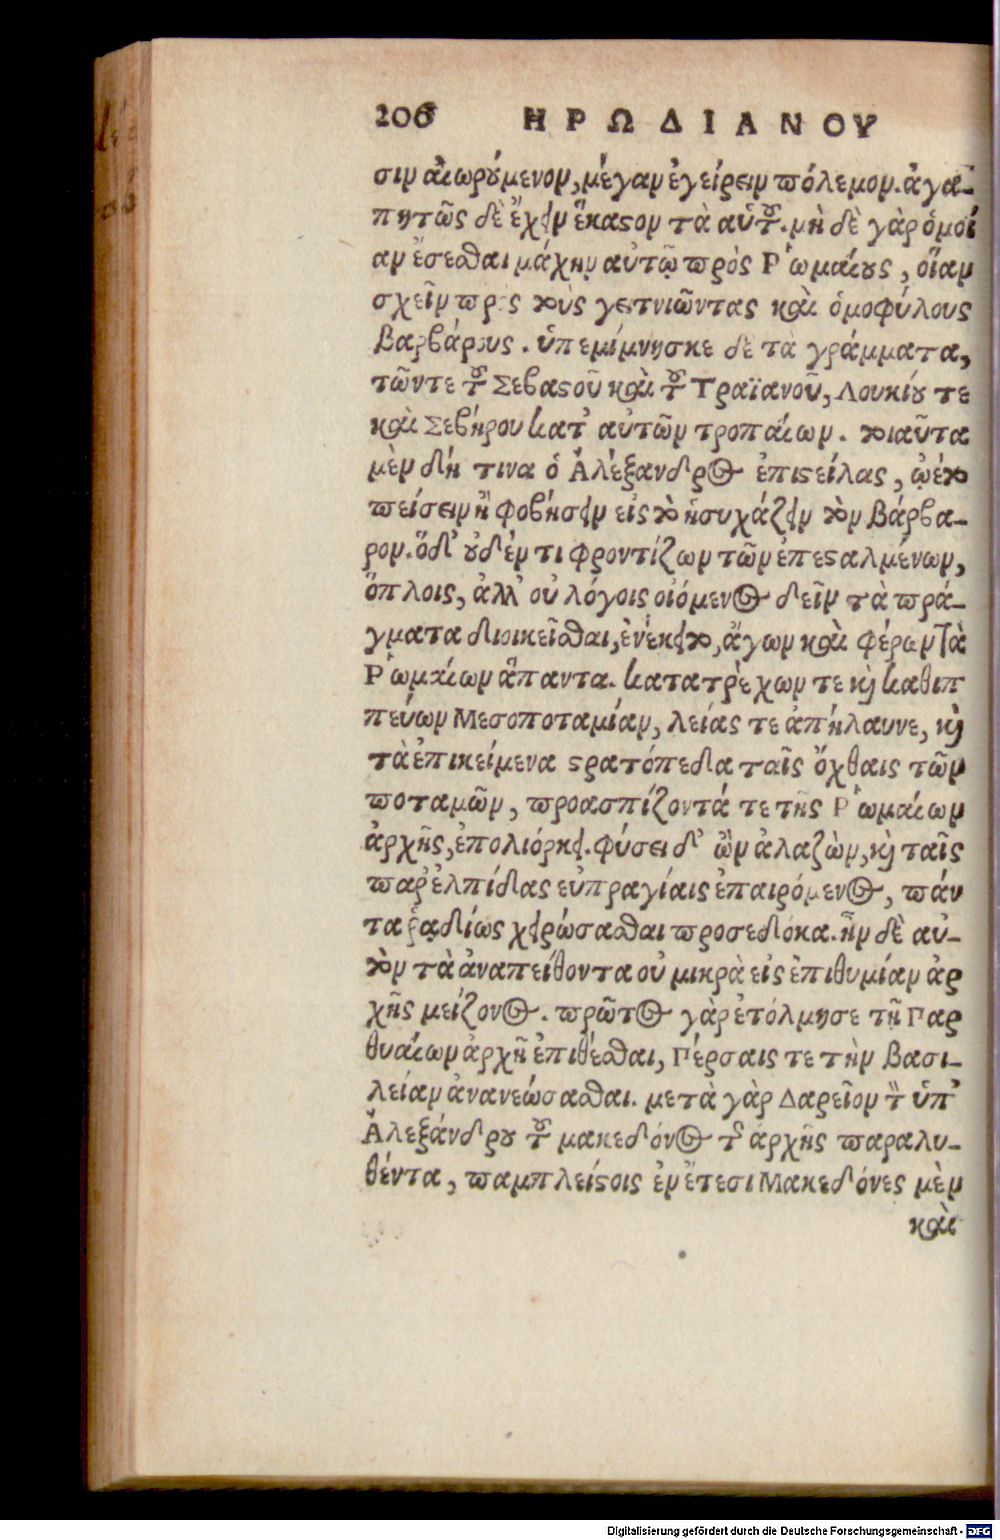 206 ΗΡΩΔΙΑΝΟΥ
σιν αἰωρούμενον, μέγαν ἐγείρειν πόλεμον. ἀγα-
πητῶς δὲ ἔχειν ἕκαστον τὰ αὑτοῦ. μὴ δὲ γὰρ ὁμοί
αν ἔσεσθαι μάχην αὐτῷ πρὸς Ῥωμαίους, οἵαν
σχεῖν πρὸς τοὺς γειτνιῶντας καὶ ὁμοφύλους
βαρβάρους. ὑπεμίμνησκε δὲ τὰ γράμματα,
τῶντε τοῦ Σεβαστοῦ καὶ τοῦ Τραϊανοῦ, Λουκίου τε
καὶ Σεβήρου κατ' αὐτῶν τροπαίων. τοιαῦτα
μὲν δή τινα ὁ Ἀλέξανδρος ἐπιστείλας, ᾤετο
πείσειν ἢ φοβήσειν εἰς τὸ ἡσυχάζειν τὸν βάρβα-
ρον. ὁ δ' οὐδέν τι φροντίζων τῶν ἐπεσταλμένων,
ὅπλοις, ἀλλ' οὐ λόγοις οἰόμενος δεῖν τὰ πρά-
γματα διοικεῖσθαι, ἐνέκειτο, ἄγων καὶ φέρων τὰ
Ῥωμαίων ἅπαντα. κατατρέχων τε καὶ καθιπ
πεύων Μεσοποταμίαν, λείας τε ἀπήλαυνε, καὶ
τὰ ἐπικείμενα στρατόπεδα ταῖς ὄχθαις τῶν
ποταμῶν, προασπίζοντά τε τῆς Ῥωμαίων
ἀρχῆς, ἐπολιόρκει. φύσει δ' ὢν ἀλαζὼν, καὶ ταῖς
παρ' ἐλπίδας εὐπραγίαις ἐπαιρόμενος, πάν
τα ῥᾳδίως χειρώσασθαι προσεδόκα. ἦν δὲ αὐ-
τὸν τὰ ἀναπείθοντα οὐ μικρὰ εἰς ἐπιθυμίαν ἀρ
χῆς μείζονος. πρῶτος γὰρ ἐτόλμησε τῇ Παρ
θυαίων ἀρχῇ ἐπιθέσθαι, Πέρσαις τε τὴν βασι-
λείαν ἀνανεώσασθαι. μετὰ γὰρ Δαρεῖον τὸν ὑπ'
Ἀλεξάνδρου τοῦ μακεδόνος τῆς ἀρχῆς παραλυ-
θέντα, παμπλείστοις ἐν ἔτεσι Μακεδόνες μὲν
καὶ
Digitalisierung gefördert durch die Deutsche Forschungsgemeinschaft - DFG